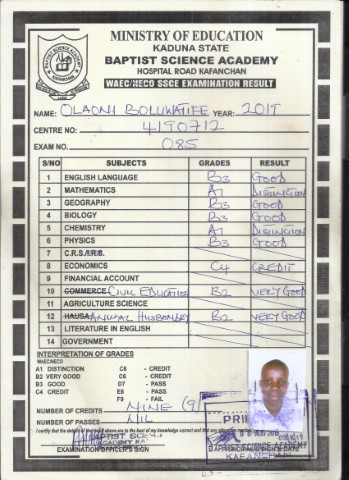 MINISTRY OF EDUCATION
KADUNA STATE
BAPTIST SCIENCE ACADEMY
HOSPITAL ROAD KAFANCHAN
WAEC/NECO SSCE EXAMINATION RESULT
NAME: OLAONI BOLUWATIFE YEAR: 2017
CENTRE NO: 4190712
EXAM NO. 085
S/NO SUBJECTS GRADES RESULT
1 ENGLISH LANGUAGE B3 GOOD
2 MATHEMATICS A1 DISTINCTION
3 GEOGRAPHY B3 GOOD
4 BIOLOGY B3 GOOD
5 CHEMISTRY A1 DISTINCTION
6 PHYSICS B3 GOOD
7 C.R.S./I.R.S.
8 ECONOMICS C4 CREDIT
9 FINANCIAL ACCOUNT
10 COMMERCE CIVIL EDUCATION B2 VERY GOOD
11 AGRICULTURE SCIENCE
12 HAUSA ANIMAL HUSBANDRY B2 VERY GOOD
13 LITERATURE IN ENGLISH
14 GOVERNMENT
INTERPRETATION OF GRADES
WAEC/NECO
A1 DISTINCTION C6 - CREDIT
B2 VERY GOOD C5 - CREDIT
B3 GOOD D7 - PASS
C4 CREDIT E8 - PASS
F9 - FAIL
NUMBER OF CREDITS NINE (9)
NUMBER OF PASSES NIL
EXAMINATION OFFICER'S SIGN
PRINCIPAL'S SIGN & DATE
KAFANCHAN